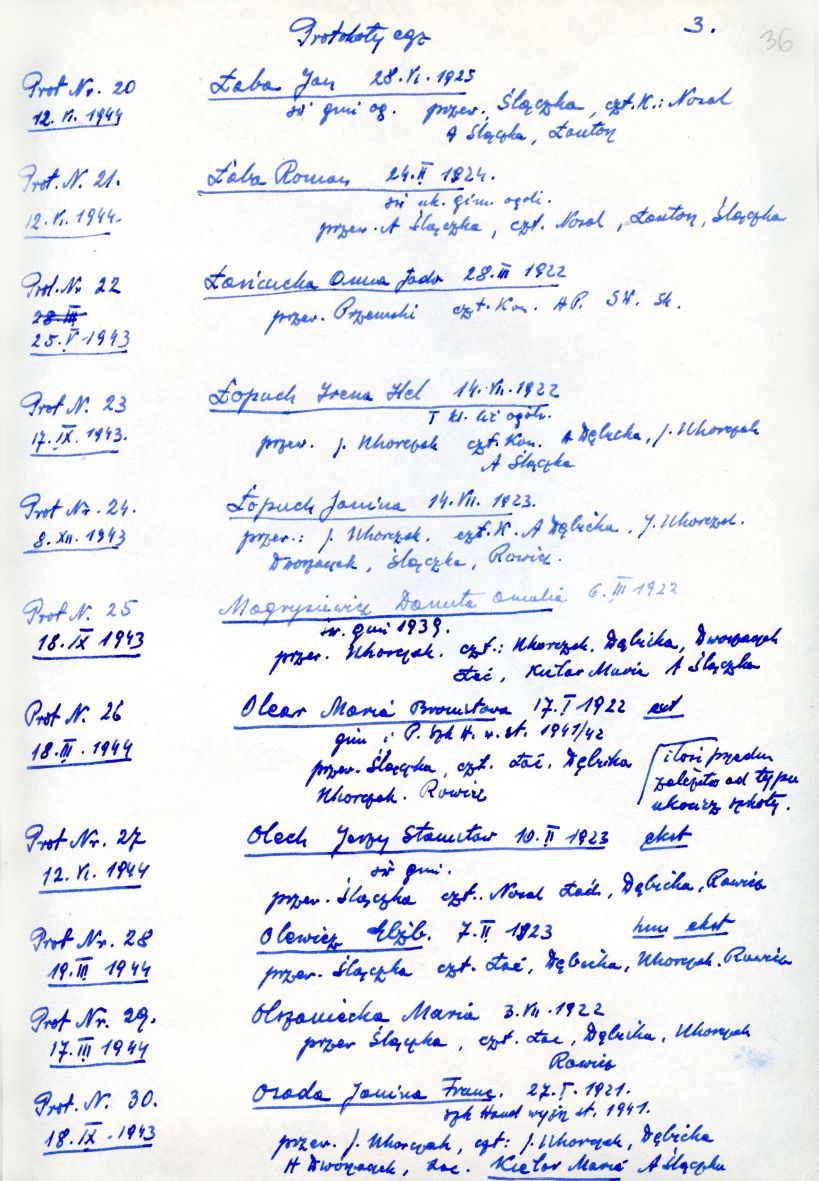 Protokoły egz 3. 36
Prot Nr. 20 Łaba Jan 28.VI.1925
12.VI.1944 św gim og. przew. Ślączka, czł.K.: Nosal
A Ślączka, Łanton
Prot. N. 21. Łaba Roman 24.II 1924.
12.VI.1944. św uk. gim. ogól.
przew. A Ślączka, czł. Nosal, Łanton, Ślączka
Prot. Nr 22 Łańcucka Anna Jadw 28.III 1922
28.III
25.V 1943 przew. czł. Kon. AP. SW. Sk.
Prot N. 23 Łopuch Irena Hel 14.VII.1922
17.IX.1943. I kl. lic ogóln.
przew. J. Uhorczak czł. Kom. A Dębicka, J. Uhorczak
A Ślączka
Prot Nr. 24. Łopuch Janina 14.VII.1923.
8.XII.1943 przew.: J. Uhorczak. czł.K. A Dębicka, J. Uhorczak.
Dworzaczek, Ślączka, Rowicz.
Prot N. 25 Danuta Amalia 6.III 1922
18.IX 1943 św. gim 1939.
przew. Uhorczak. czł.: Uhorczak. Dębicka, Dworzaczek
Łać, Kielar Maria A Ślączka
Prot N. 26 Olear Maria Bronisława 17.I 1922 ext
18.III.1944 gim i P. Szk H. w. st. 1941/42
przew. Ślączka, czł. Łać, Dębicka
Uhorczak. Rowicz
ilość przedm
zależało od typu
ukończ szkoły.
Prot Nr. 27 Olech Jerzy Stanisław 10.II 1923 ekst
12.VI.1944 św gim.
przew. Ślączka czł. Nosal Łać, Dębicka, Rowicz
Prot Nr. 28 Olewicz Elżb. 7.II 1923 hum ekst
19.III 1944 przew. Ślączka czł. Łać, Dębicka, Uhorczak. Rowicz
Prot Nr. 29. Olszaniecka Maria 3.VII.1922
17.III 1944 przew Ślączka, czł. Łać, Dębicka, Uhorczak
Rowicz
Prot. N. 30. Osada Janina Franc. 27.I.1921.
18.IX.1943 szk Hand wyższ st. 1941.
przew. J. Uhorczak, czł: J. Uhorczak, Dębicka
H Dworzaczek, Łać. Kielar Maria A Ślączka